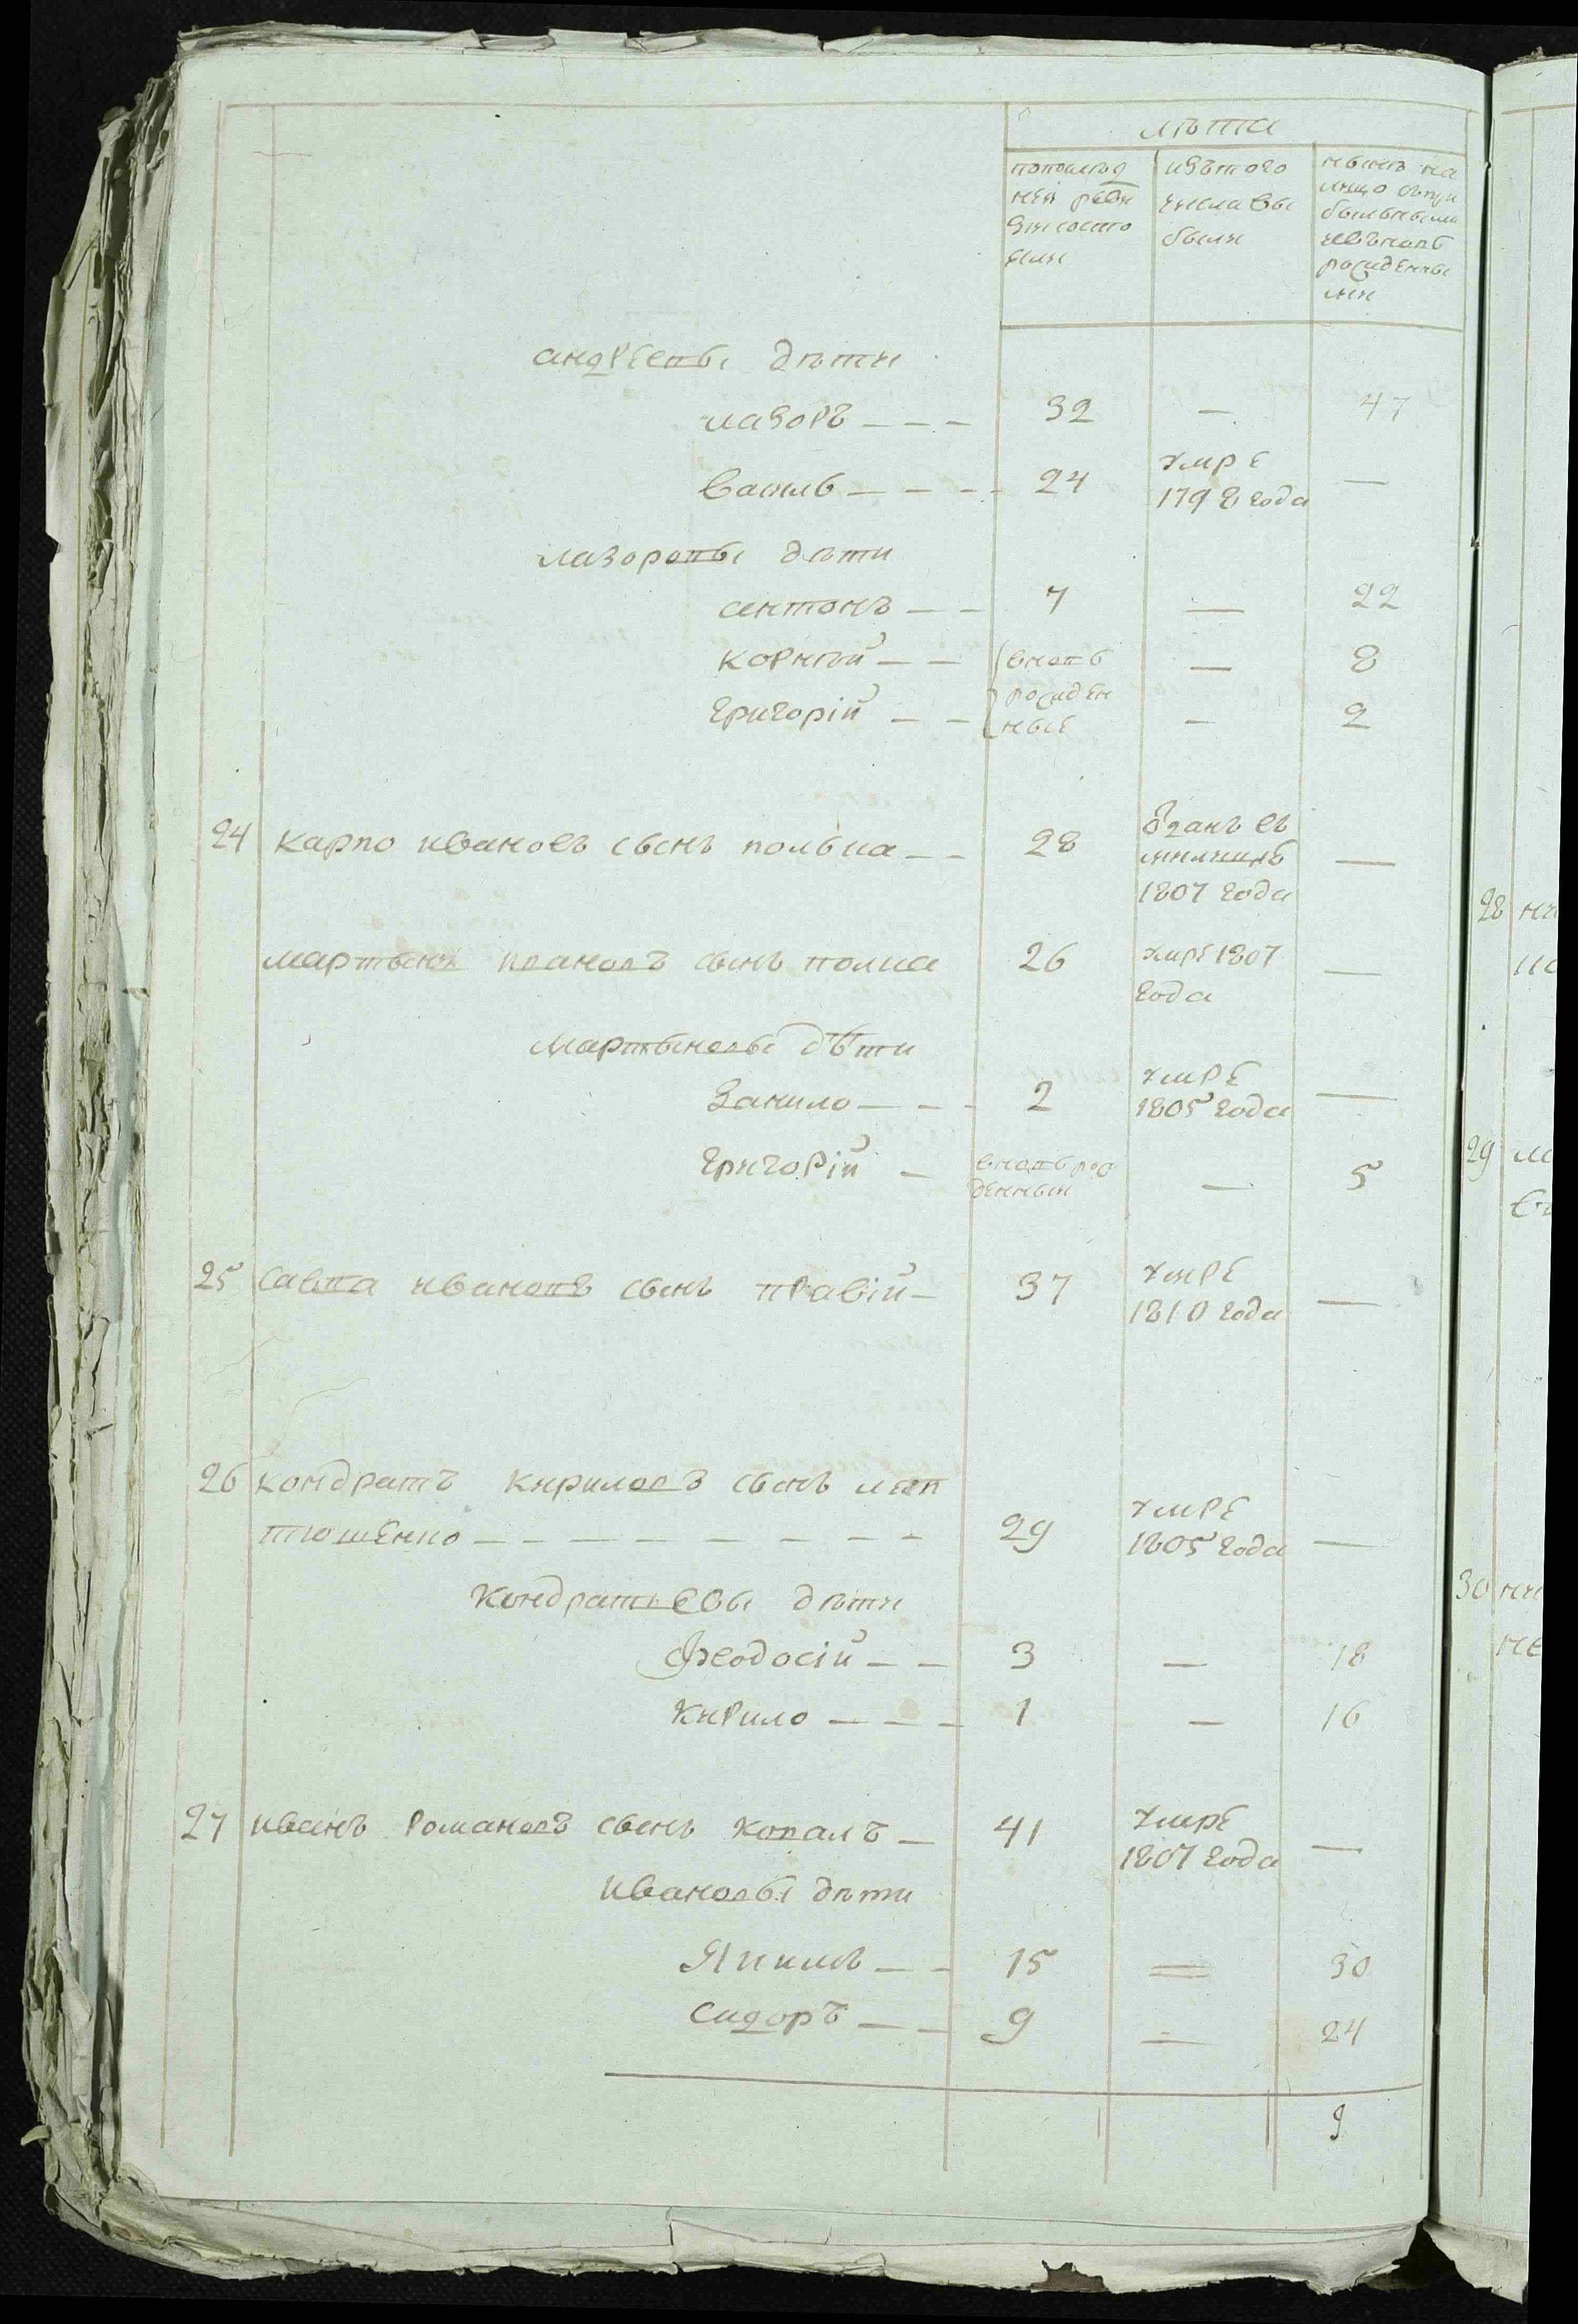 лѣта
попослѣд
ней реви
зіи состо
яли
изътого
числа вы
были
нынѣ на
лицо съпри
былыми
ивъновь
рожденны
ми
андреевы дѣти
лазоръ — — — 32 — 47
василь — — — 24 умре 1798 года —
лазоровы дѣти
антонъ — — 7 — 22
корнѣй — — вновь рожден — 8
григорій — — ные — 2
24 карпо ивановъ сынъ полька — — 28 отданъ въ милицію 1807 года —
мартынъ ивановъ сынъ полка 26 умре 1807 года —
мартыновы дѣти
данило — — — 2 умре 1805 года —
григорій — вновь рож денный — 5
25 савва ивановъ сынъ правій — 37 умре 1810 года —
26 кондратъ кириловъ сынъ
тюшенко — — — — — — — — 29 умре 1805 года —
кондратьевы дѣти
феодосій — — 3 — 18
кирило — — — 1 — 16
27 иванъ романовъ сынъ ковалъ — 41 умре 1807 года —
ивановы дѣти
Якимъ — — 15 — 30
сидоръ — — 9 — 24
9
28
29
30